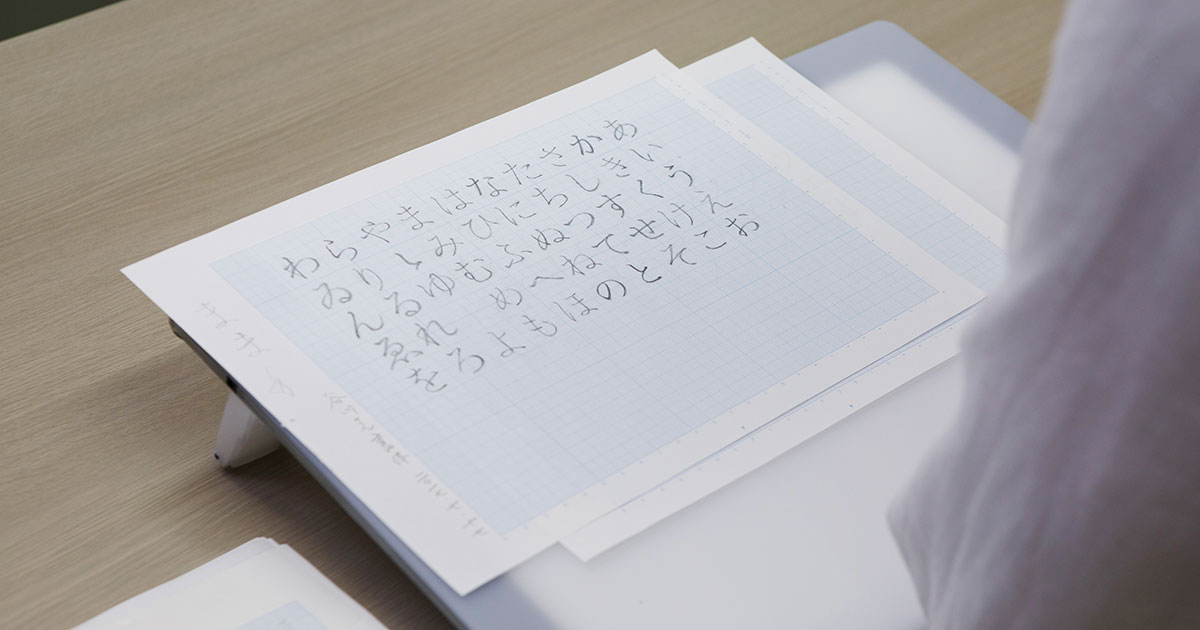 あいうえお
かきくけこ
さしすせそ
たちつてと
なにぬねの
はひふへほ
まみむめも
やゝゆよ
らりるれろ
わゐんゑを